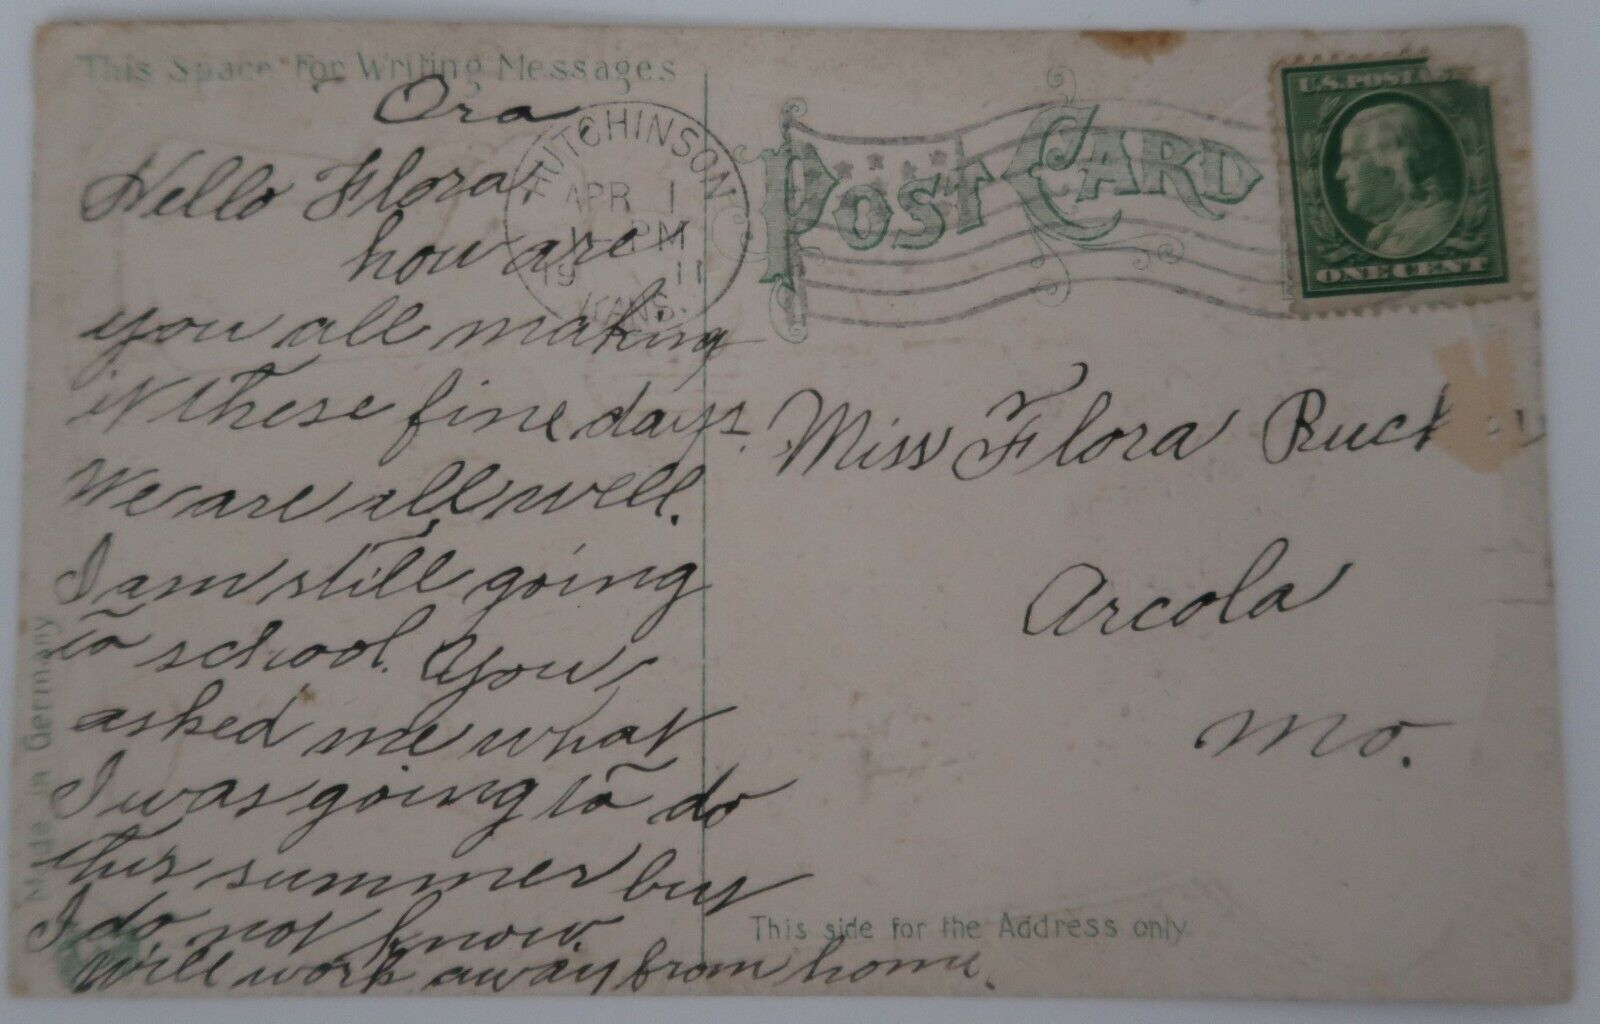 This Space For Writing Messages
Ora
Hello Flora
how are
you all making
it these fine days.
We are all well.
I am still going
to school. You
asked me what
I was going to do
this summer but
I do not know.
Will work away from home.
Made in Germany
HUTCHINSON
APR 1
PM
19 11
KANS.
POST CARD
U.S. POSTA
ONE CENT
Miss Flora Ruck
Arcola
Mo.
This side for the Address only.